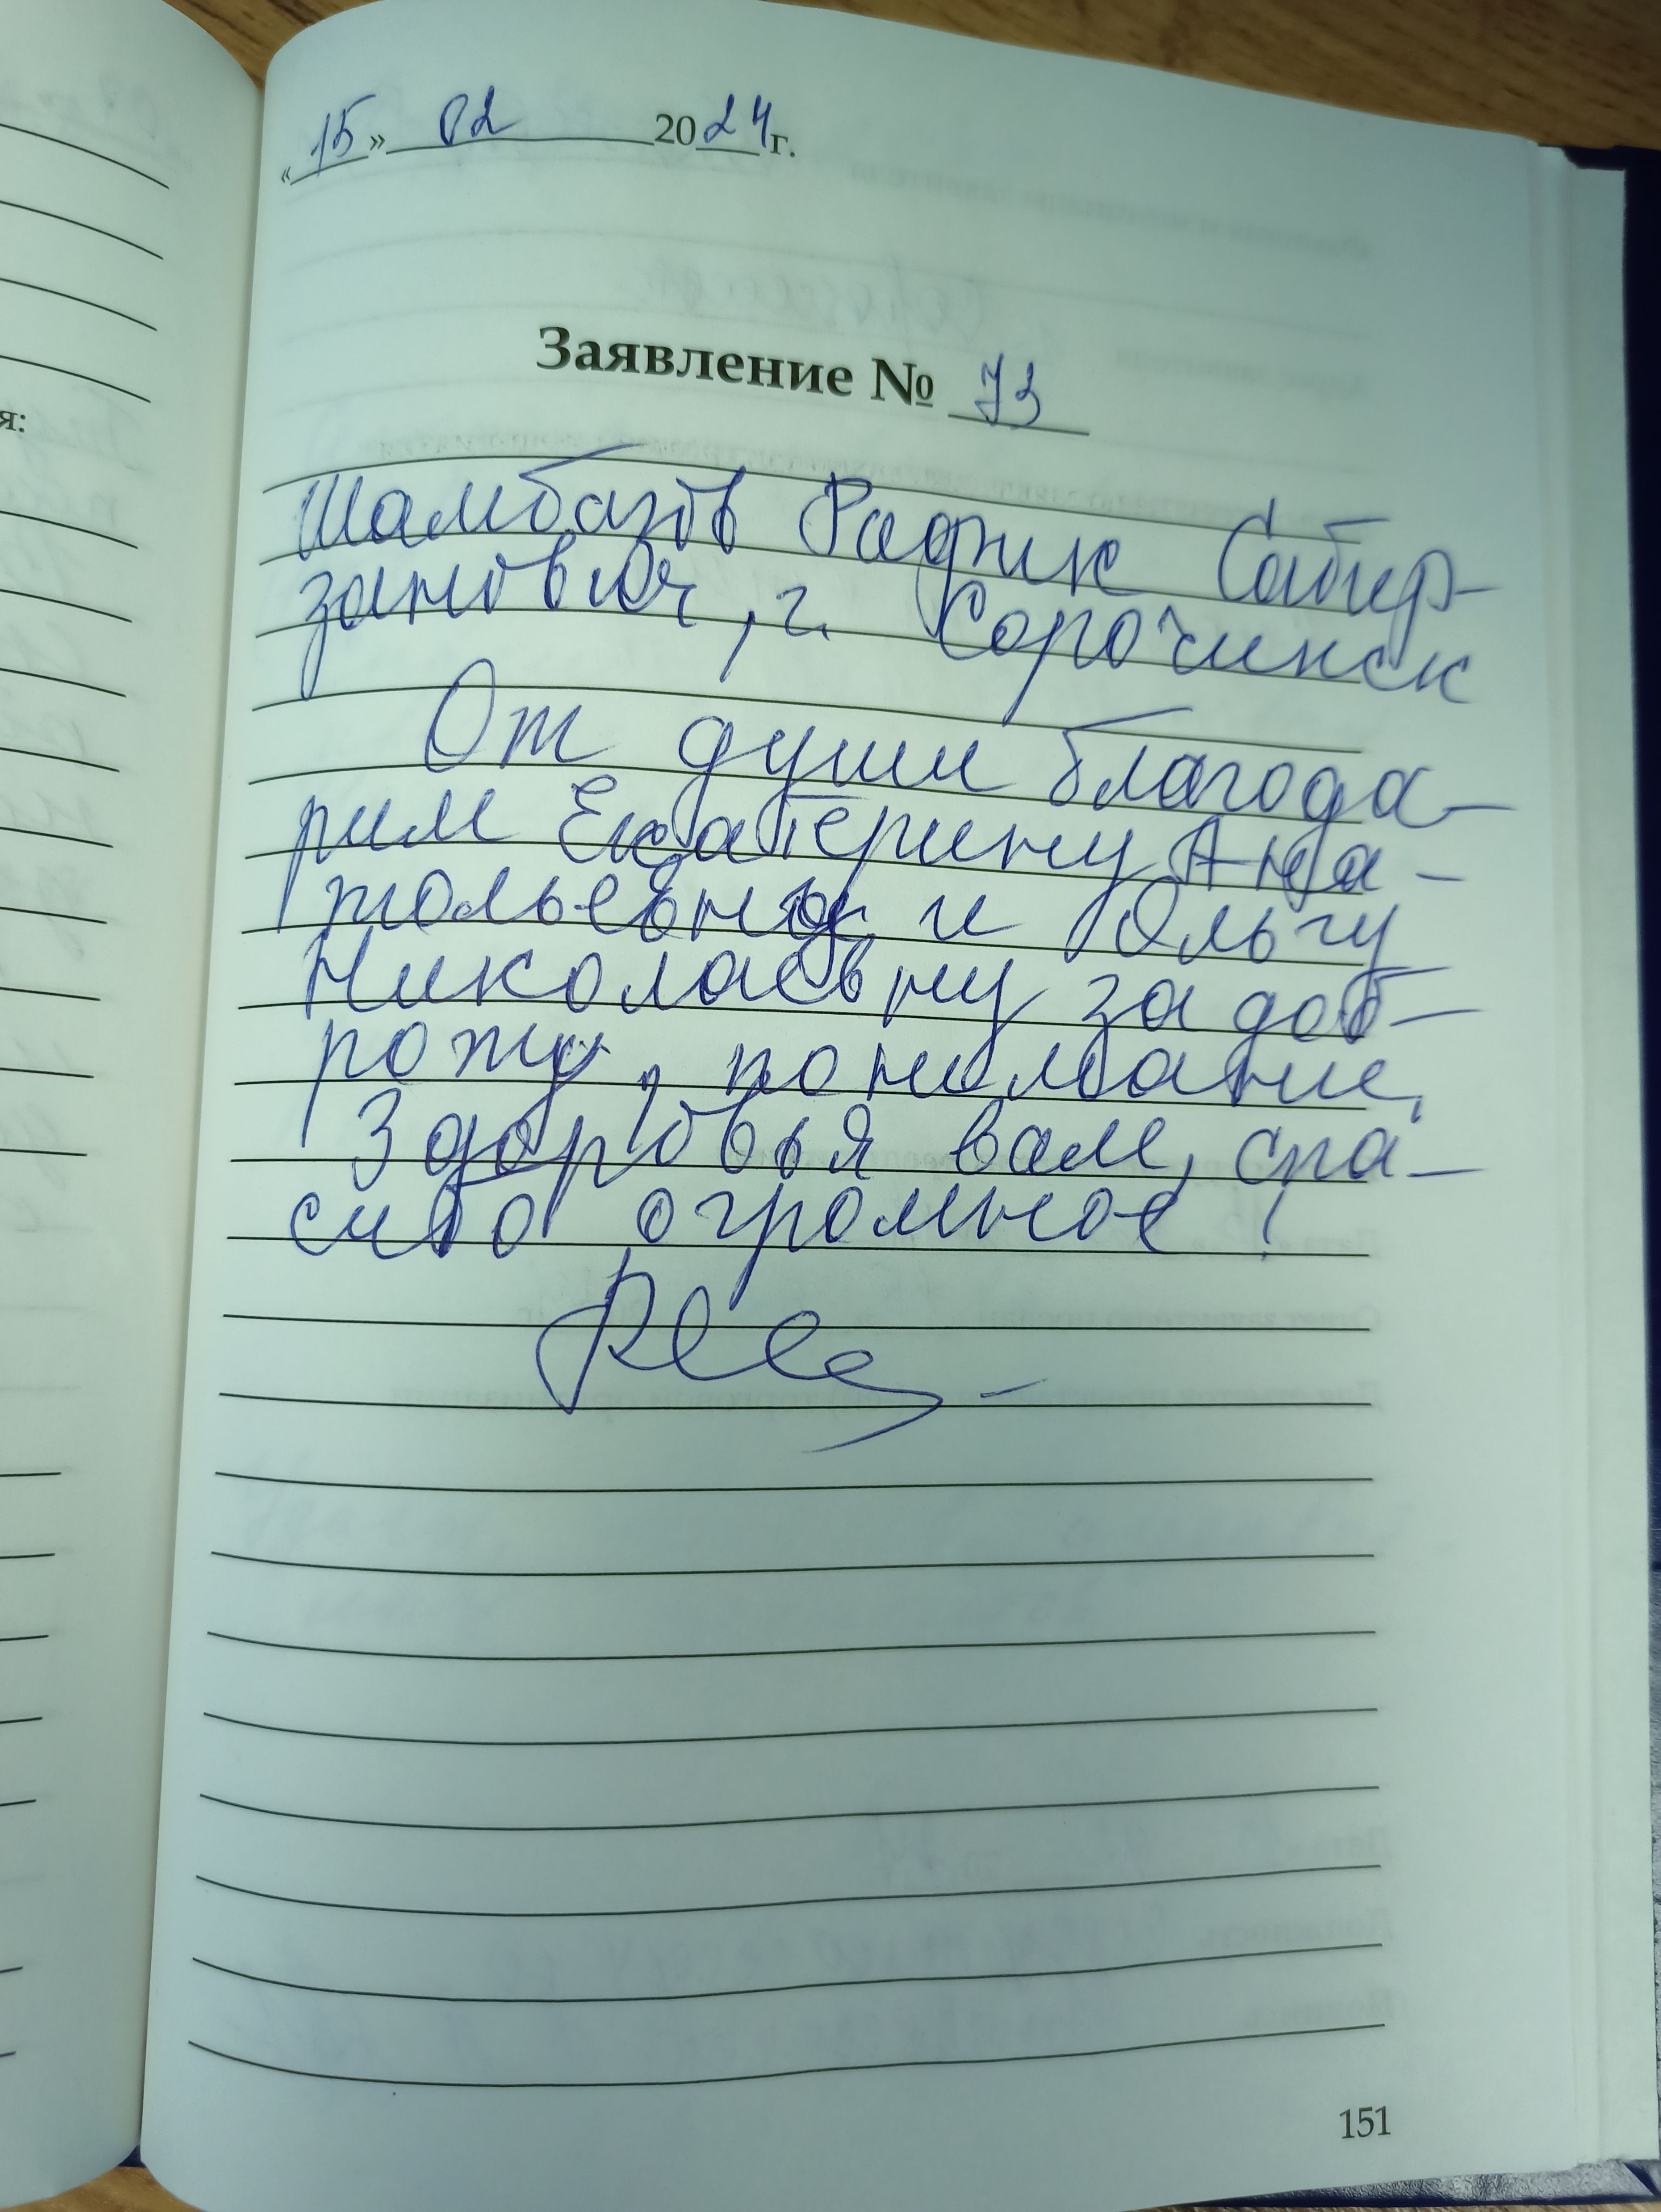 «15» 02 2024г.
Заявление № 73
Шамбазов Рафик Сабир-
занович, г. Сорочинск
От души благода-
рим Екатерину Ана-
тольевну и Ольгу
Николаевну за доб-
роту, понимание,
Здоровья вам, спа-
сибо огромное!
я:
151